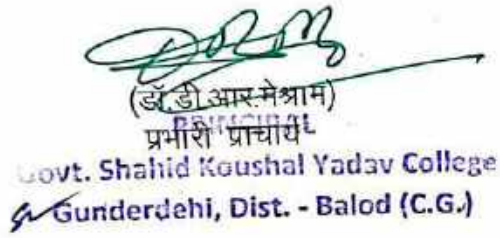 (डॉ.डी.आर.मेश्राम)
PRINCIPAL
प्रभारी प्राचार्य
Govt. Shahid Koushal Yadav College
Gunderdehi, Dist. - Balod (C.G.)